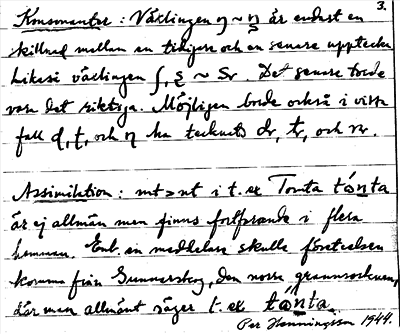 3.
Konsonanter: Växlingen η ~ ŋ är endast en
skillnad mellan en tidigare och en senare uppteckn
likaså växlingen ʃ, ~ sr. Det senare torde
vara det riktiga. Möjligen borde också i vissa
fall ɖ, ʈ, och η ha tecknats dr, tr, och nr.
Assimilation: mt > nt i t. ex Tomta tónta
är ej allmän men finns fortfarande i flera
hemman. Enl. en meddelare skulle företeelsen
komma från Gunnarskog, den norra grannsocknen,
där man allmänt säger t. ex tónta.
Per Henningsson 1944.